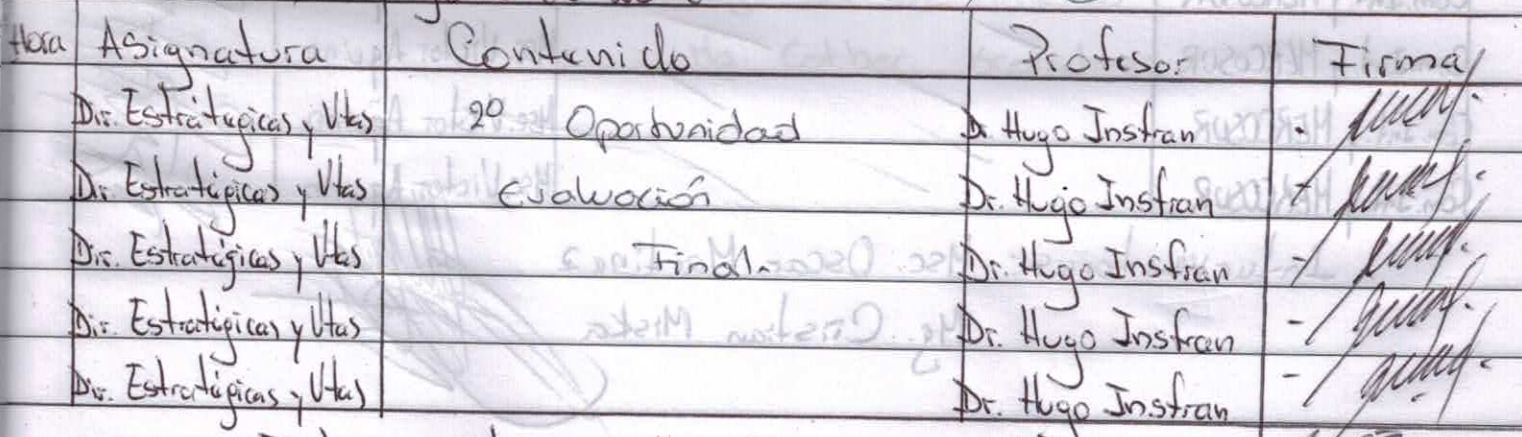 Hora Asignatura Contenido Profesor Firma
Dir. Estratégicas y Vtas 2º Oportunidad Dr. Hugo Insfran
Dir. Estratégicas y Vtas Evaluación Dr. Hugo Insfran
Dir. Estratégicas y Vtas Final. Dr. Hugo Insfran
Dir. Estratégicas y Vtas Dr. Hugo Insfran
Dir. Estratégicas y Vtas Dr. Hugo Insfran